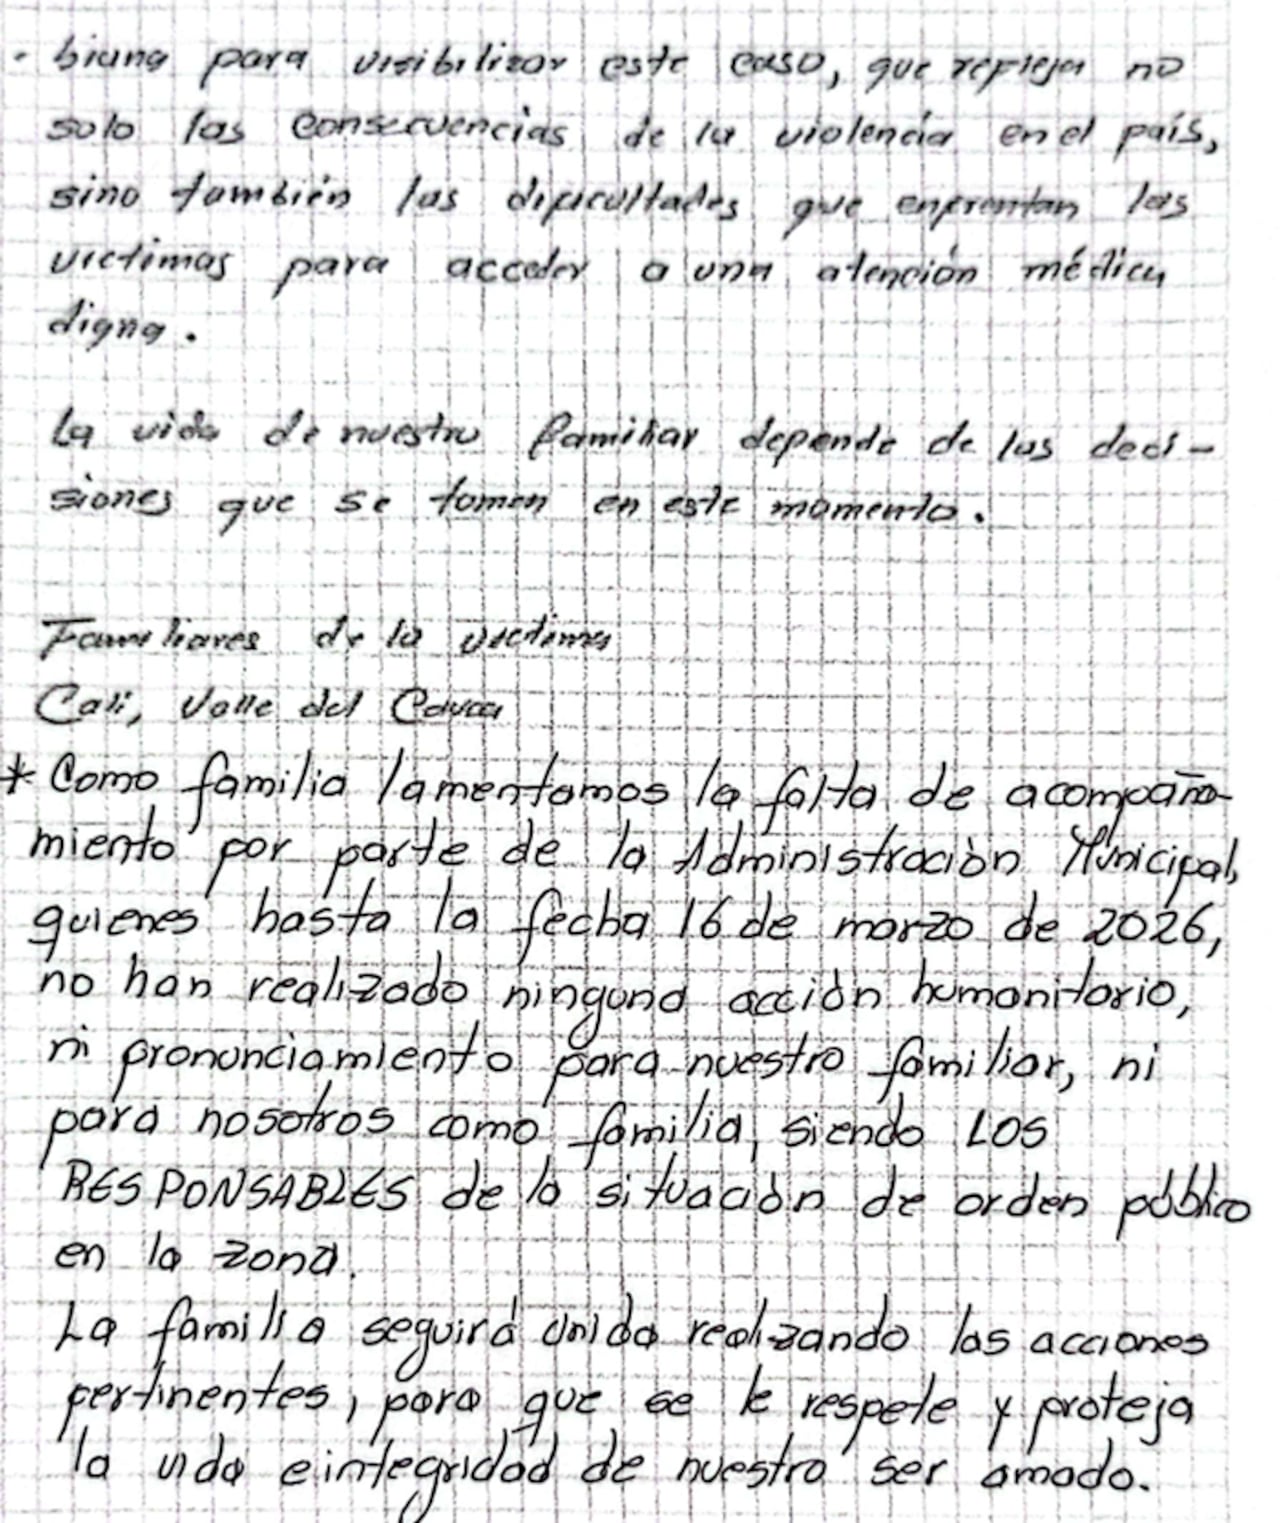 - biana para visibilizar este caso, que refleja no
solo las consecuencias de la violencia en el país,
sino también las dificultades que enfrentan las
victimas para acceder a una atención médica
digna.
La vida de nuestro familiar depende de las deci-
siones que se tomen en este momento.
Familiares de la victima
Cali, Valle del Cauca
* Como familia lamentamos la falta de acompaña-
miento por parte de la Administración Municipal,
quienes hasta la fecha 16 de marzo de 2026,
no han realizado ninguna acción humanitario,
ni pronunciamiento para nuestro familiar, ni
para nosotros como familia, siendo LOS
RESPONSABLES de la situación de orden público
en la zona.
La familia seguirá unida realizando las acciones
pertinentes, para que se le respete y proteja
la vida e integridad de nuestro ser amado.